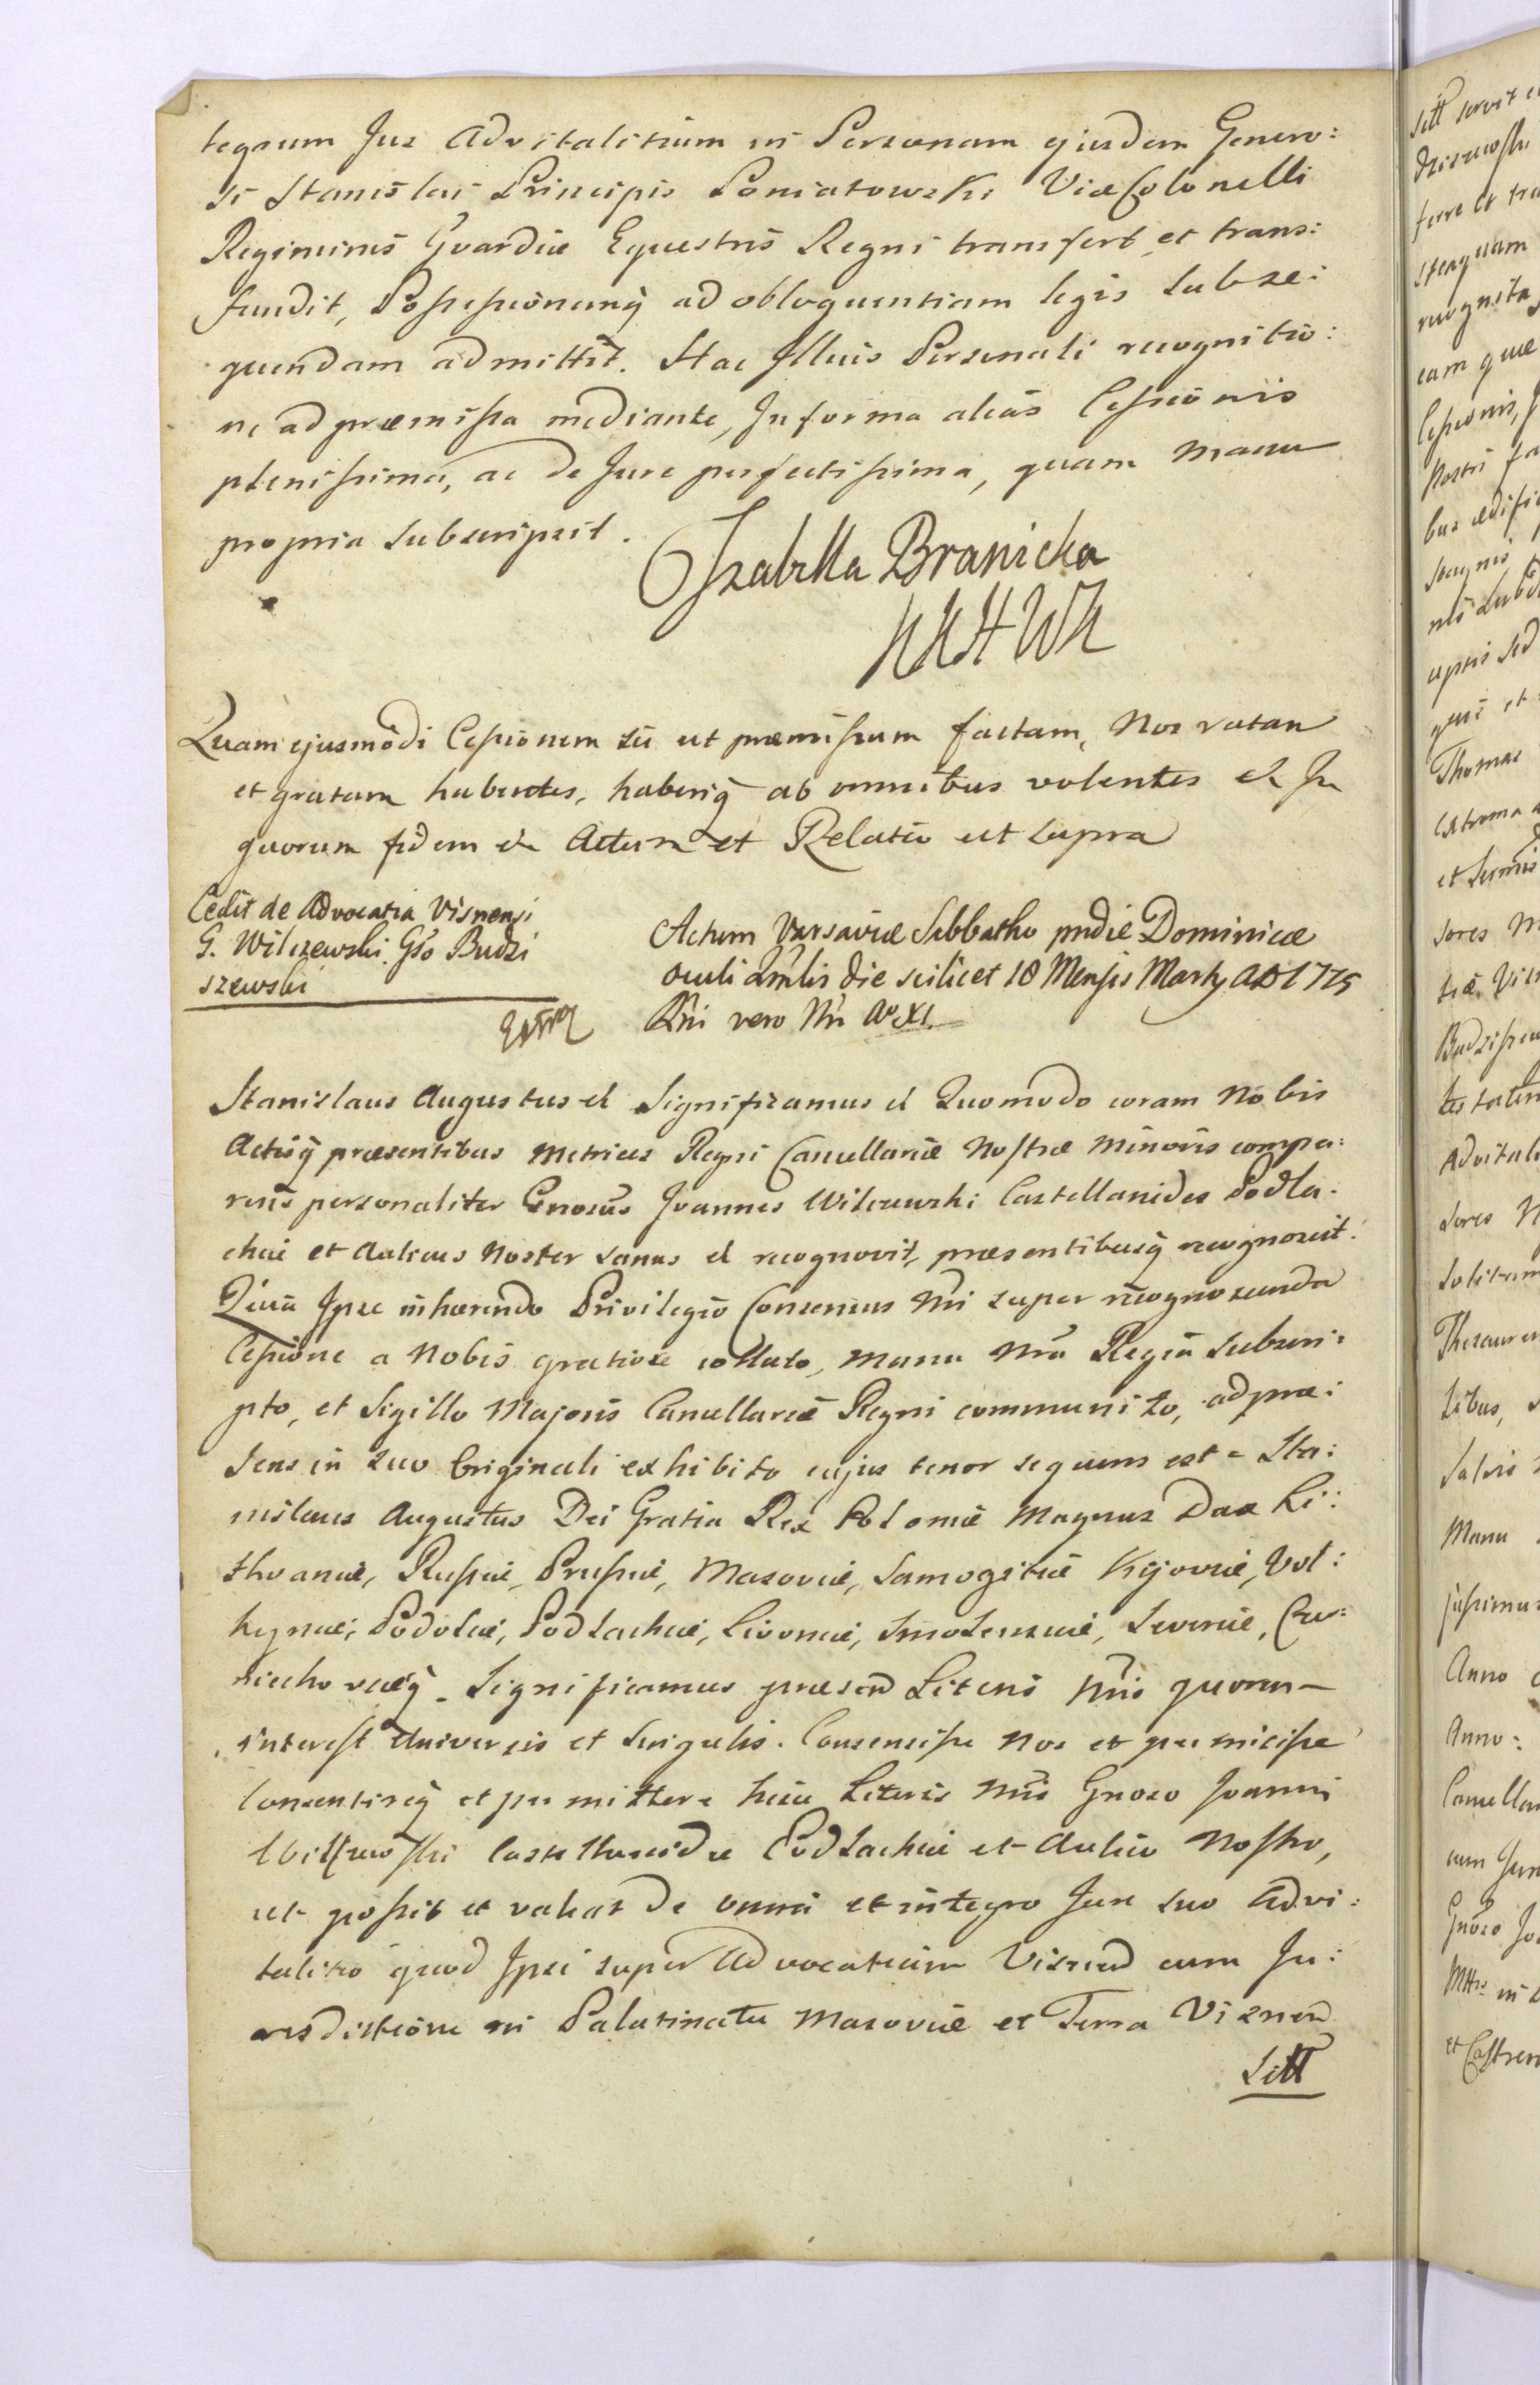 tegrum Jus Advitalitium in Personam ejusdem Genero:
si Stanislai Principis Poniatowski Vice Colonelli
Regiminis Gvardiæ Equestris Regni transfert et trans:
fundit, Possessionemq̃ ad obloquentiam legis subse:
quendam admittit. Hac Illius Personali recognitio:
ne ad præmissa mediante, In forma alias Cessionis
plenissima, ac de Jure perfectissima, quam Manu
propria subscripsit.
Izabella Branicka
KKHWK
Quam ejusmodi Cessionem sic ut præmissum factam, Nos ratam
et gratam habentes, haberiq̃ ab omnibus volentes et In
quorum fidem et Actum et Relatio ut supra
Cedit de Advocatia Visnensi
G. Wilczewski Gso Budzi
szewski
Actum Varsaviæ Sabbatho pridie Dominicæ
Oculi Qmlis die scilicet 18 Mensis Martij AD 1775
Rni vero Nri Ao XI.
Stanislaus Augustus et Significamus et Quomodo coram Nobis
Actisq̃ præsentibus Metrices Regni Cancellariæ Nostræ Minoris compa:
rens personaliter Gnosus Joannes Wilczewski Castellanides Podla:
chiæ et Aulicus Noster sanus et recognovit, præsentibusq̃ recognoscit.
Quia Ipse inhærendo Privilegio Consensus Nri super recognoscenda
Cessione a Nobis gratiose collato, manu Nra Regia subscri:
pto, et Sigillo Majoris Cancellariæ Regni communito, ad præ:
sens in suo Originali exhibito cujus tenor sequens est = Sta:
nislaus Augustus Dei Gratia Rex Poloniæ Magnus Dux Li:
thvaniæ, Russiæ, Prussiæ, Masoviæ, Samogitiæ Kijoviæ, Vol:
hyniæ, Podoliæ, Podlachiæ, Livoniæ, Smolensciæ, Severiæ, Czer:
niechoviæq̃. Significamus præsen Literis Nris quorum
interest Universis et Singulis. Consensisse Nos et permisisse
Consentireq̃ et permittere hisce Literis Nris Gnoso Joanni
Wilczewski Castellanidæ Podlachiæ et Aulico Nostro,
ut possit et valeat de omni et integro Jure suo Advi:
talitio quod Ipsi super Advocatiam Visnen cum Ju:
risdictione in Palatinatu Masoviæ et Terra Visnen
Sitt